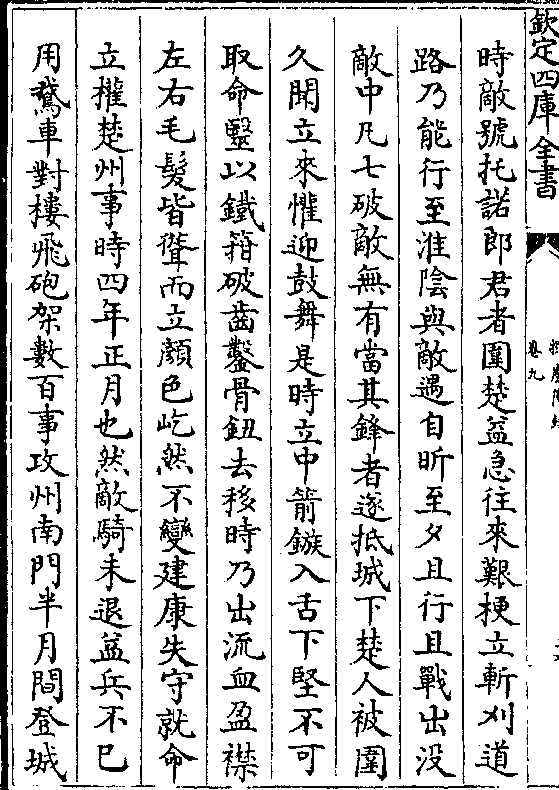 欽定四庫全書
卷九
時敵號托諾郎君者圍楚益急往來艱梗立斬刈道
路乃能行至淮陰與敵遇自昕至夕且行且戰出没
敵中凡七破敵無有當其鋒者遂抵城下楚人被圍
久聞立來懽迎鼓舞是時立中箭鏃入舌下堅不可
取命毉以鐵箝破齒鑿骨鈕去移時乃出流血盈襟
左右毛髮皆聳而立顏色屹然不變建康失守就命
立權楚州事時四年正月也然敵騎未退益兵不已
用鵞車對樓飛砲架數百事攻州南門半月間登城